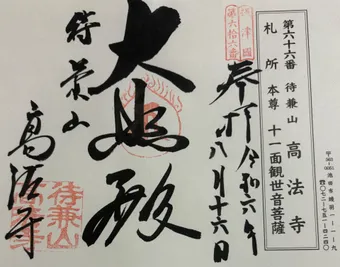 第六十六番 待兼山 高法寺
札所 本尊 十一面観世音菩薩
〒563-0051 池田市綾羽一-一-一九
摂津國
第六拾六番
奉拝 令和六年
八月十六日
大悲殿
待兼山
高法寺
待兼山